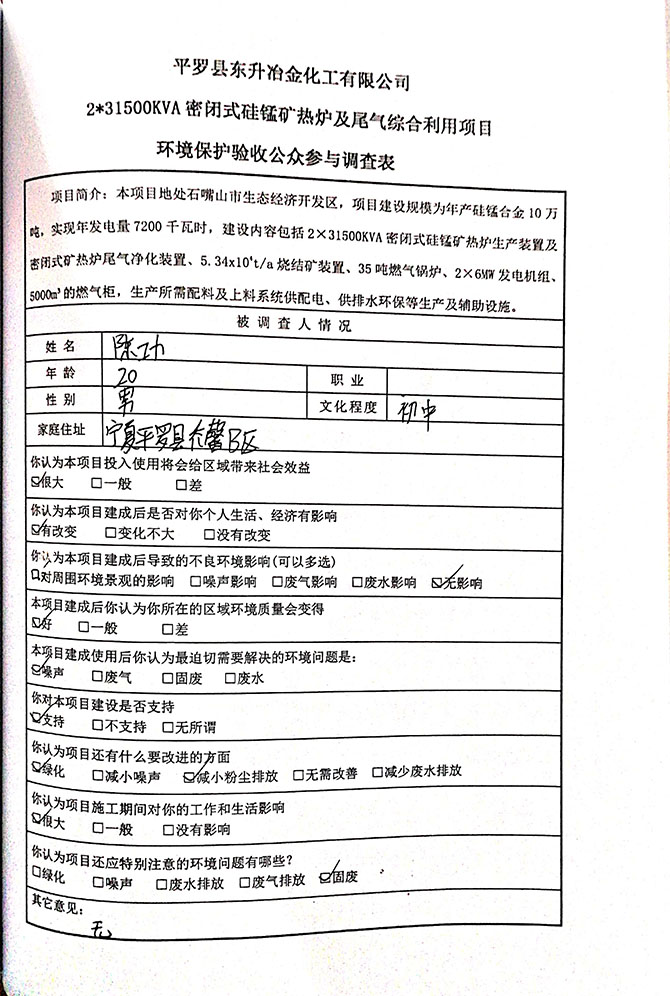 平罗县东升冶金化工有限公司
2*31500KVA 密闭式硅锰矿热炉及尾气综合利用项目
环境保护验收公众参与调查表
项目简介：本项目地处石嘴山市生态经济开发区，项目建设规模为年产硅锰合金 10 万
吨，实现年发电量 7200 千瓦时，建设内容包括 2×31500KVA 密闭式硅锰矿热炉生产装置及
密闭式矿热炉尾气净化装置、5.34x10⁴t/a 烧结矿装置、35 吨燃气锅炉、2×6MW 发电机组、
5000m³的燃气柜，生产所需配料及上料系统供配电、供排水环保等生产及辅助设施。
被调查人情况
姓名 陈功
年龄 20 职业
性别 男 文化程度 初中
家庭住址 宁夏平罗县 馨B区
你认为本项目投入使用将会给区域带来社会效益
☑很大 □一般 □差
你认为本项目建成后是否对你个人生活、经济有影响
☑有改变 □变化不大 □没有改变
你认为本项目建成后导致的不良环境影响(可以多选)
□对周围环境景观的影响 □噪声影响 □废气影响 □废水影响 ☑无影响
本项目建成后你认为你所在的区域环境质量会变得
☑好 □一般 □差
本项目建成使用后你认为最迫切需要解决的环境问题是：
☑噪声 □废气 □固废 □废水
你对本项目建设是否支持
☑支持 □不支持 □无所谓
你认为项目还有什么要改进的方面
☑绿化 □减小噪声 ☑减小粉尘排放 □无需改善 □减少废水排放
你认为项目施工期间对你的工作和生活影响
☑很大 □一般 □没有影响
你认为项目还应特别注意的环境问题有哪些？
□绿化 □噪声 □废水排放 □废气排放 ☑固废
其它意见：
无